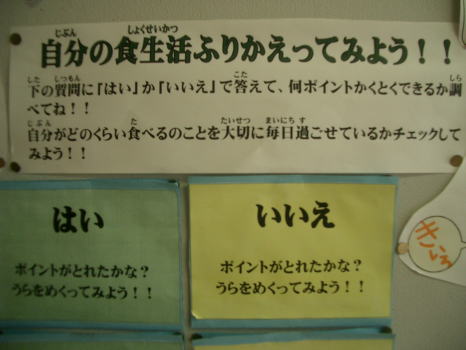 自分の食生活ふりかえってみよう！！
下の質問に「はい」か「いいえ」で答えて、何ポイントかくとくできるか調
べてね！！
自分がどのくらい食べるのことを大切に毎日過ごせているかチェックして
みよう！！
はい
ポイントがとれたかな？
うらをめくってみよう！！
いいえ
ポイントがとれたかな？
うらをめくってみよう！！
きいろ